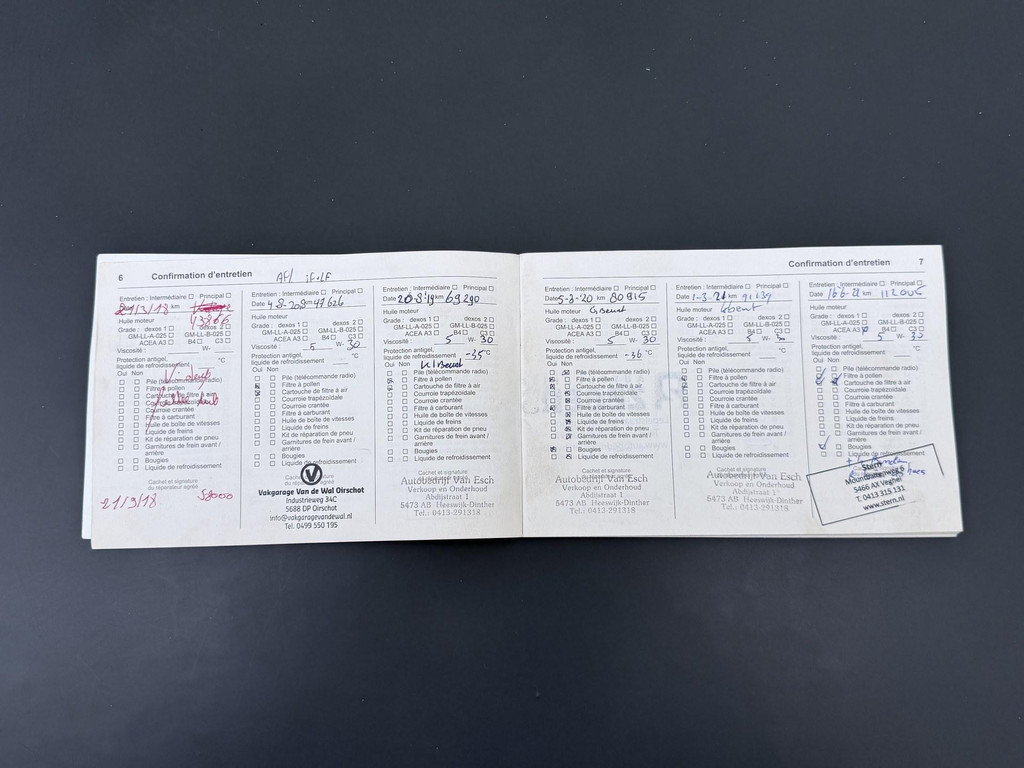 6 Confirmation d'entretien
Entretien : Intermédiaire Principal
21/3/18 km
Huile moteur
Grade : dexos 1 dexos 2
GM-LL-A-025 GM-LL-B-025
ACEA A3 B4 C3
Viscosité : W-
Protection antigel,
liquide de refroidissement °C
Oui Non
Pile (télécommande radio)
Filtre à pollen
Cartouche de filtre à air
Courroie trapézoïdale
Courroie crantée
Filtre à carburant
Huile de boîte de vitesses
Liquide de freins
Kit de réparation de pneu
Garnitures de frein avant /
arrière
Bougies
Liquide de refroidissement
Cachet et signature
du réparateur agréé
21/3/18
Entretien : Intermédiaire Principal
Date km 47626
Huile moteur
Grade : dexos 1 dexos 2
GM-LL-A-025 GM-LL-B-025
ACEA A3 B4 C3
Viscosité : 5 W- 30
Protection antigel,
liquide de refroidissement °C
Oui Non
Pile (télécommande radio)
Filtre à pollen
Cartouche de filtre à air
Courroie trapézoïdale
Courroie crantée
Filtre à carburant
Huile de boîte de vitesses
Liquide de freins
Kit de réparation de pneu
Garnitures de frein avant /
arrière
Bougies
Liquide de refroidissement
Cachet et signature
Vakgarage Van de Wal Oirschot
Industrieweg 34C
5688 DP Oirschot
info@vakgaragevandewal.nl
Tel. 0499 550 195
Entretien : Intermédiaire Principal
Date 20-8-'19 km 69290
Huile moteur
Grade : dexos 1 dexos 2
GM-LL-A-025 GM-LL-B-025
ACEA A3 B4 C3
Viscosité : 5 W- 30
Protection antigel,
liquide de refroidissement -35 °C
Oui Non
Pile (télécommande radio)
Filtre à pollen
Cartouche de filtre à air
Courroie trapézoïdale
Courroie crantée
Filtre à carburant
Huile de boîte de vitesses
Liquide de freins
Kit de réparation de pneu
Garnitures de frein avant /
arrière
Bougies
Liquide de refroidissement
Cachet et signature
Autobedrijf Van Esch
Verkoop en Onderhoud
Abdijstraat 1
5473 AB Heeswijk-Dinther
Tel.: 0413-291318
Confirmation d'entretien 7
Entretien : Intermédiaire Principal
Date 5-3-20 km 80815
Huile moteur
Grade : dexos 1 dexos 2
GM-LL-A-025 GM-LL-B-025
ACEA A3 B4 C3
Viscosité : 5 W- 30
Protection antigel,
liquide de refroidissement -36 °C
Oui Non
Pile (télécommande radio)
Filtre à pollen
Cartouche de filtre à air
Courroie trapézoïdale
Courroie crantée
Filtre à carburant
Huile de boîte de vitesses
Liquide de freins
Kit de réparation de pneu
Garnitures de frein avant /
arrière
Bougies
Liquide de refroidissement
Cachet et signature
Autobedrijf Van Esch
Verkoop en Onderhoud
Abdijstraat 1
5473 AB Heeswijk-Dinther
Tel.: 0413-291318
Entretien : Intermédiaire Principal
Date 1-3-21 km 91139
Huile moteur
Grade : dexos 1 dexos 2
GM-LL-A-025 GM-LL-B-025
ACEA A3 B4 C3
Viscosité : 5 W- 30
Protection antigel,
liquide de refroidissement °C
Oui Non
Pile (télécommande radio)
Filtre à pollen
Cartouche de filtre à air
Courroie trapézoïdale
Courroie crantée
Filtre à carburant
Huile de boîte de vitesses
Liquide de freins
Kit de réparation de pneu
Garnitures de frein avant /
arrière
Bougies
Liquide de refroidissement
Cachet et signature
Autobedrijf Van Esch
Verkoop en Onderhoud
Abdijstraat 1
5473 AB Heeswijk-Dinther
Tel.: 0413-291318
Entretien : Intermédiaire Principal
Date km 112005
Huile moteur
Grade : dexos 1 dexos 2
GM-LL-A-025 GM-LL-B-025
ACEA A3 B4 C3
Viscosité : 5 W- 30
Protection antigel,
liquide de refroidissement °C
Oui Non
Pile (télécommande radio)
Filtre à pollen
Cartouche de filtre à air
Courroie trapézoïdale
Courroie crantée
Filtre à carburant
Huile de boîte de vitesses
Liquide de freins
Kit de réparation de pneu
Garnitures de frein avant /
arrière
Bougies
Liquide de refroidissement
Stern
5466 AX Veghel
T. 0413 315 131
www.stern.nl